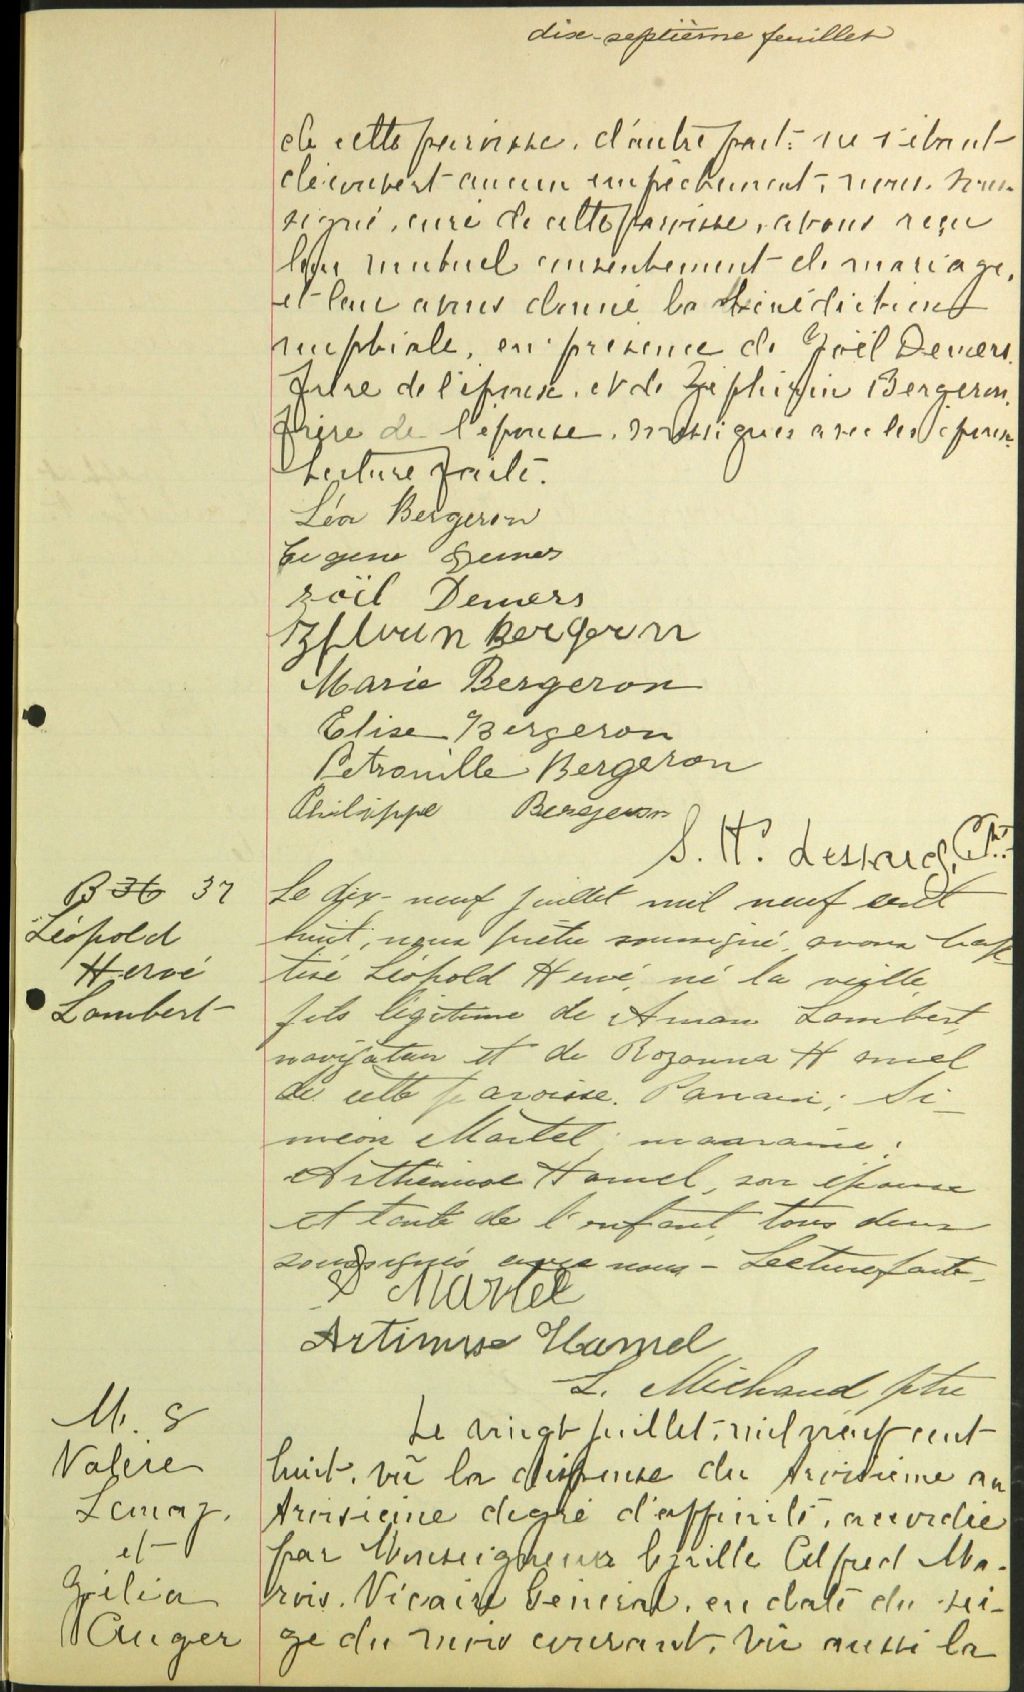 dix-septième feuillet
de cette paroisse, d'autre part: ne s'étant
découvert aucun empêchement, nous, sous-
signé, curé de cette paroisse, avons reçu
leur mutuel consentement de mariage,
et leur avons donné la bénédiction
nuptiale, en présence de Zoël Demers,
frère de l'époux, et de Zéphirin Bergeron,
frère de l'épouse, soussignés avec les époux.
Lecture faite.
Léa Bergeron
Eugene Demers
Zoël Demers
Bergeron
Marie Bergeron
Elise Bergeron
Petronille Bergeron
Philippe Bergeron
S. H.
B 36 37
Léopold
Hervé
Lambert
Le dix-neuf juillet mil neuf cent
huit, nous prêtre soussigné, avons bap-
tisé Léopold Hervé, né la veille,
fils légitime de Lambert,
navigateur et de Rozanna Hamel
de cette paroisse. Parrain; Si-
méon Martel; marraine:
Arthémise Hamel, son épouse
et tante de l'enfant, tous deux
soussignés avec nous - Lecture faite.
S Martel
Artimise Hamel
L. Michaud ptre
M. 8
Valère
Lemay,
et
Zélia
Auger
Le vingt juillet, mil neuf cent
huit, vû la dispense du troisième au
troisième degré d'affinité, accordée
par Monseigneur Cyrille Alfred Ma-
rois, Vicaire Général, en date du sei-
ze du mois courant, vû aussi la